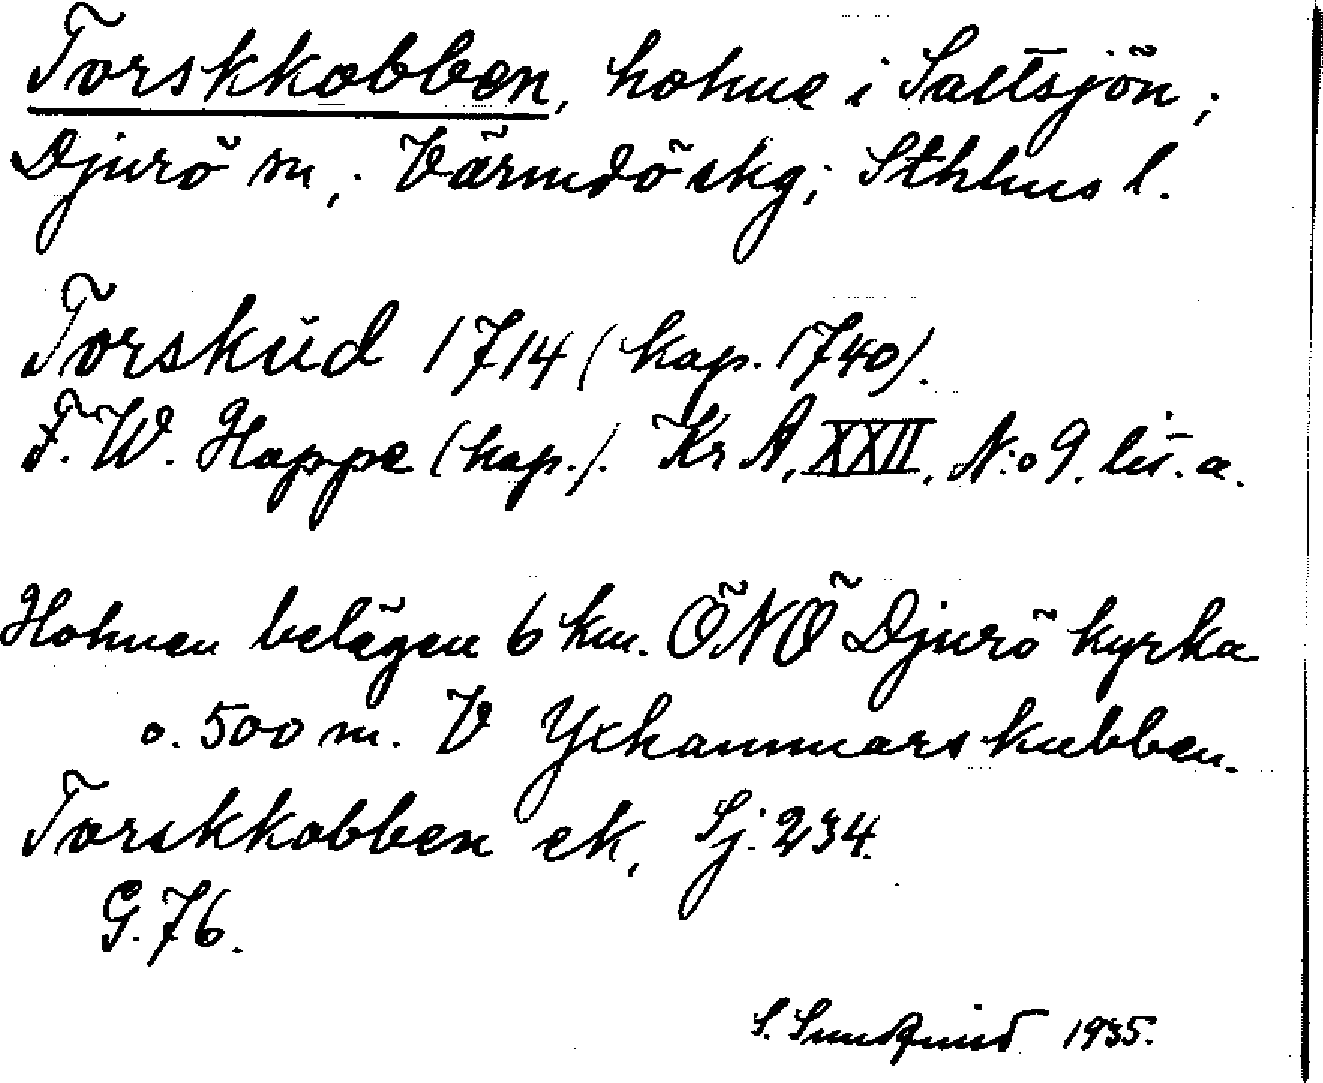 Torskkobben, holme i Saltsjön;
Djurö sn; Värmdö skg; Sthlms l.
Torskūd 1714 (kop. 1740).
F. W. Hoppe (kop.). Kr A, XXII, N:o 9. lit. a.
Holmen belägen 6 km. ÖNÖ Djurö kyrka
o. 500 m. V Yxhammarskubben.
Torskkobben ek, Sj. 234.
G. 76.
S. Sundquist 1935.